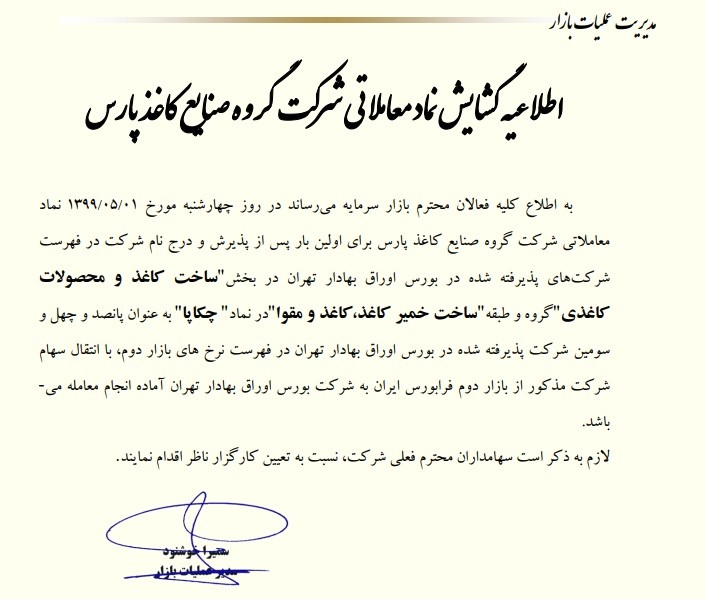 مدیریت عملیات بازار
اطلاعیه گشایش نماد معاملاتی شرکت گروه صنایع کاغذ پارس
به اطلاع کلیه فعالان محترم بازار سرمایه می‌رساند در روز چهارشنبه مورخ ۱۳۹۹/۰۵/۰۱ نماد
معاملاتی شرکت گروه صنایع کاغذ پارس برای اولین بار پس از پذیرش و درج نام شرکت در فهرست
شرکت‌های پذیرفته شده در بورس اوراق بهادار تهران در بخش"ساخت کاغذ و محصولات
کاغذی"گروه و طبقه"ساخت خمیر کاغذ،کاغذ و مقوا"در نماد" چکاپا" به عنوان پانصد و چهل و
سومین شرکت پذیرفته شده در بورس اوراق بهادار تهران در فهرست نرخ های بازار دوم، با انتقال سهام
شرکت مذکور از بازار دوم فرابورس ایران به شرکت بورس اوراق بهادار تهران آماده انجام معامله می-
باشد.
لازم به ذکر است سهامداران محترم فعلی شرکت، نسبت به تعیین کارگزار ناظر اقدام نمایند.
سمیرا خوشنود
مدیر عملیات بازار